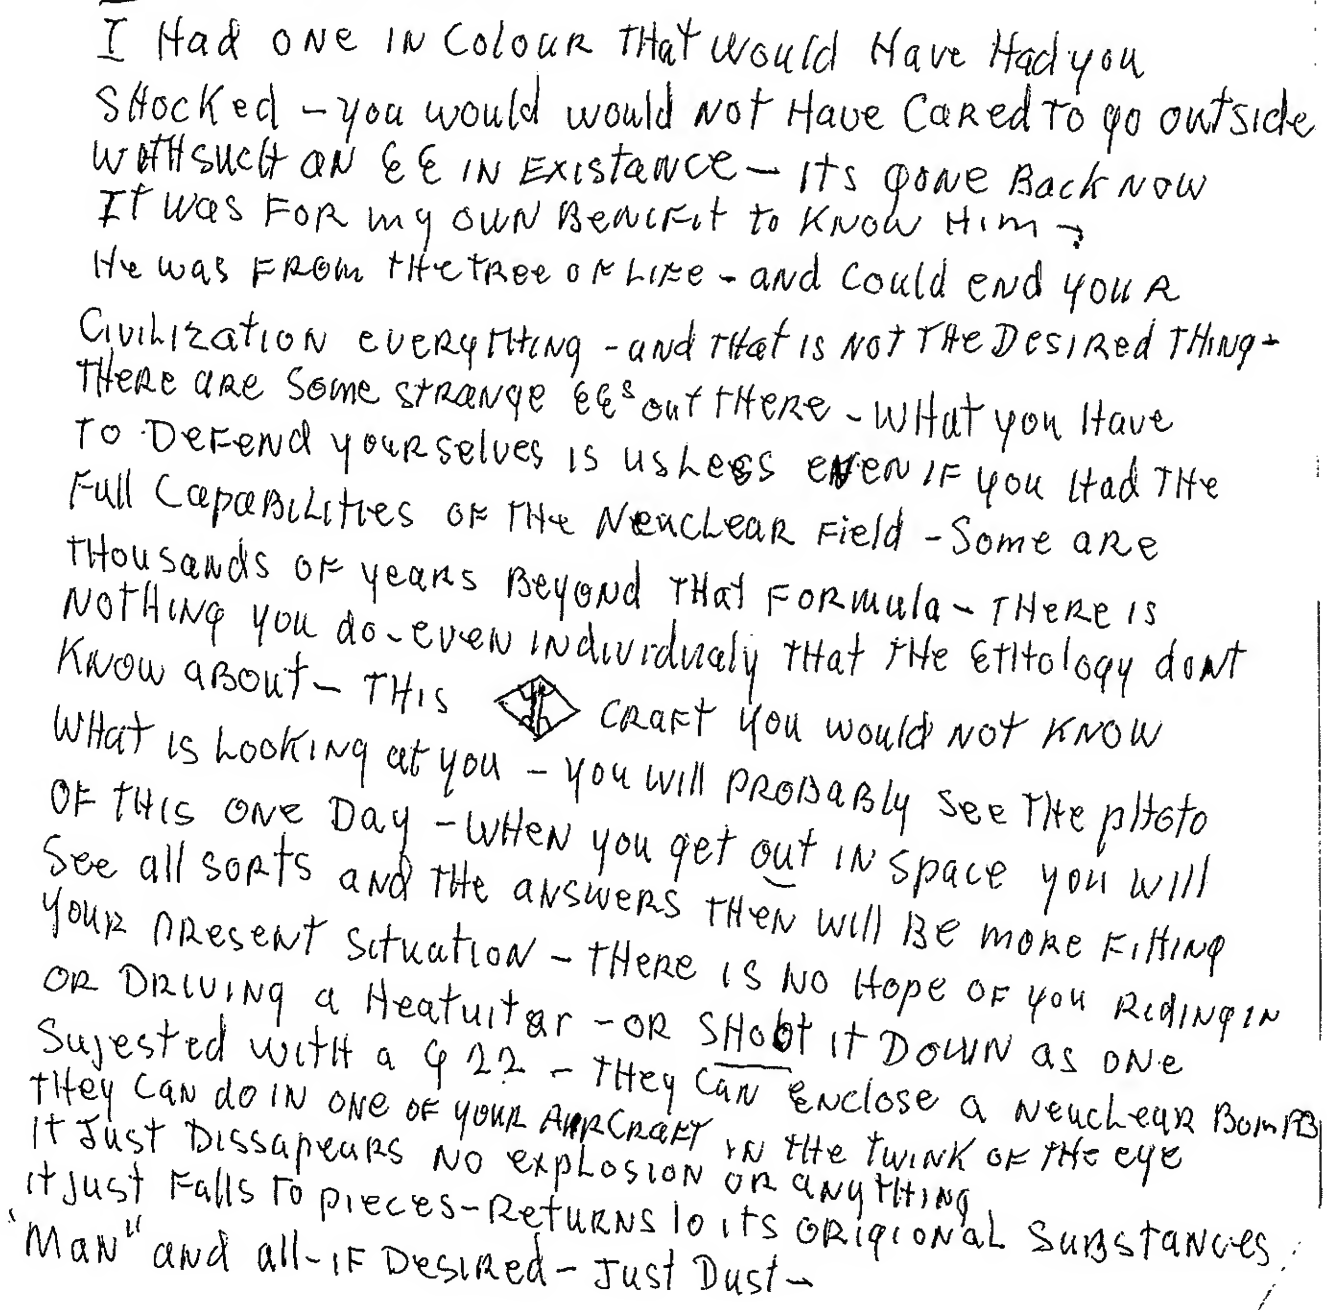 I Had ONE IN Colour THat would Have Had you
SHocked - you would would Not Have Cared To go outside
WitHsucH an EE IN Existance - Its gone Back Now
It was For my own Benifit to Know Him -
He was From tHe tree of Life - and could end your
Civilization everyTHing - and THat is Not THe Desired THing -
THere are Some strange EEs out tHere - WHat you Have
To Defend yourselves is usless even if you Had THe
Full Capabilities of THe Neuclear Field - Some are
THousands of years Beyond THat Formula - THere is
NotHing you do - even individualy THat THe Etitology dont
Know about - THis craft you would Not Know
WHat is Looking at you - you will Probably see THe pHoto
Of tHis one Day - WHen you get out in space you will
See all sorts and THe answers THen will Be more Fitting
your present situation - tHere is No Hope of you Riding in
or Driving a Heatuitar - or SHoot it Down as one
Sujested witH a G 22 - THey can enclose a Neuclear Bomb
THey Can do in one of your AirCraft in tHe twink of tHe eye
It Just Dissapears No explosion or anytHing
it just Falls To pieces - Returns to its origional Substances
"Man" and all - if Desired - Just Dust -